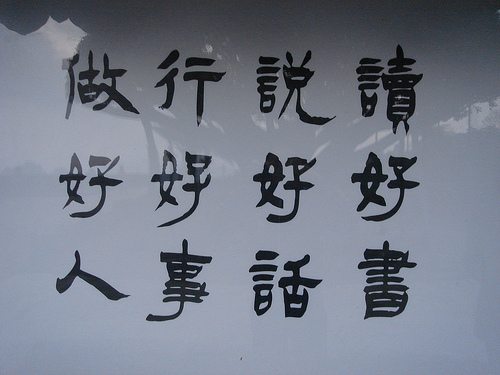 讀好書
說好話
行好事
做好人